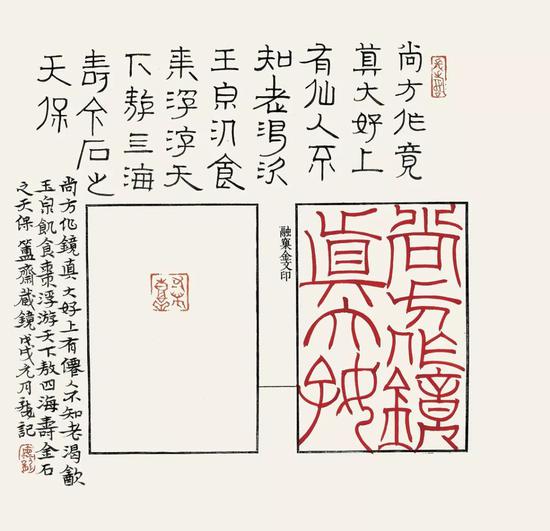 尚方作竟
真大好上
有仙人不
知老渴
王泉汎食
浮天
下敖三海
壽今石之
天保
尚方作鏡
真大好
融襄金文印
尚方作鏡真大好上有僊人不知老渴歙
玉泉飢食棗浮游天下敖四海壽金石
之天保簠齋藏鏡戊戌元月龍記